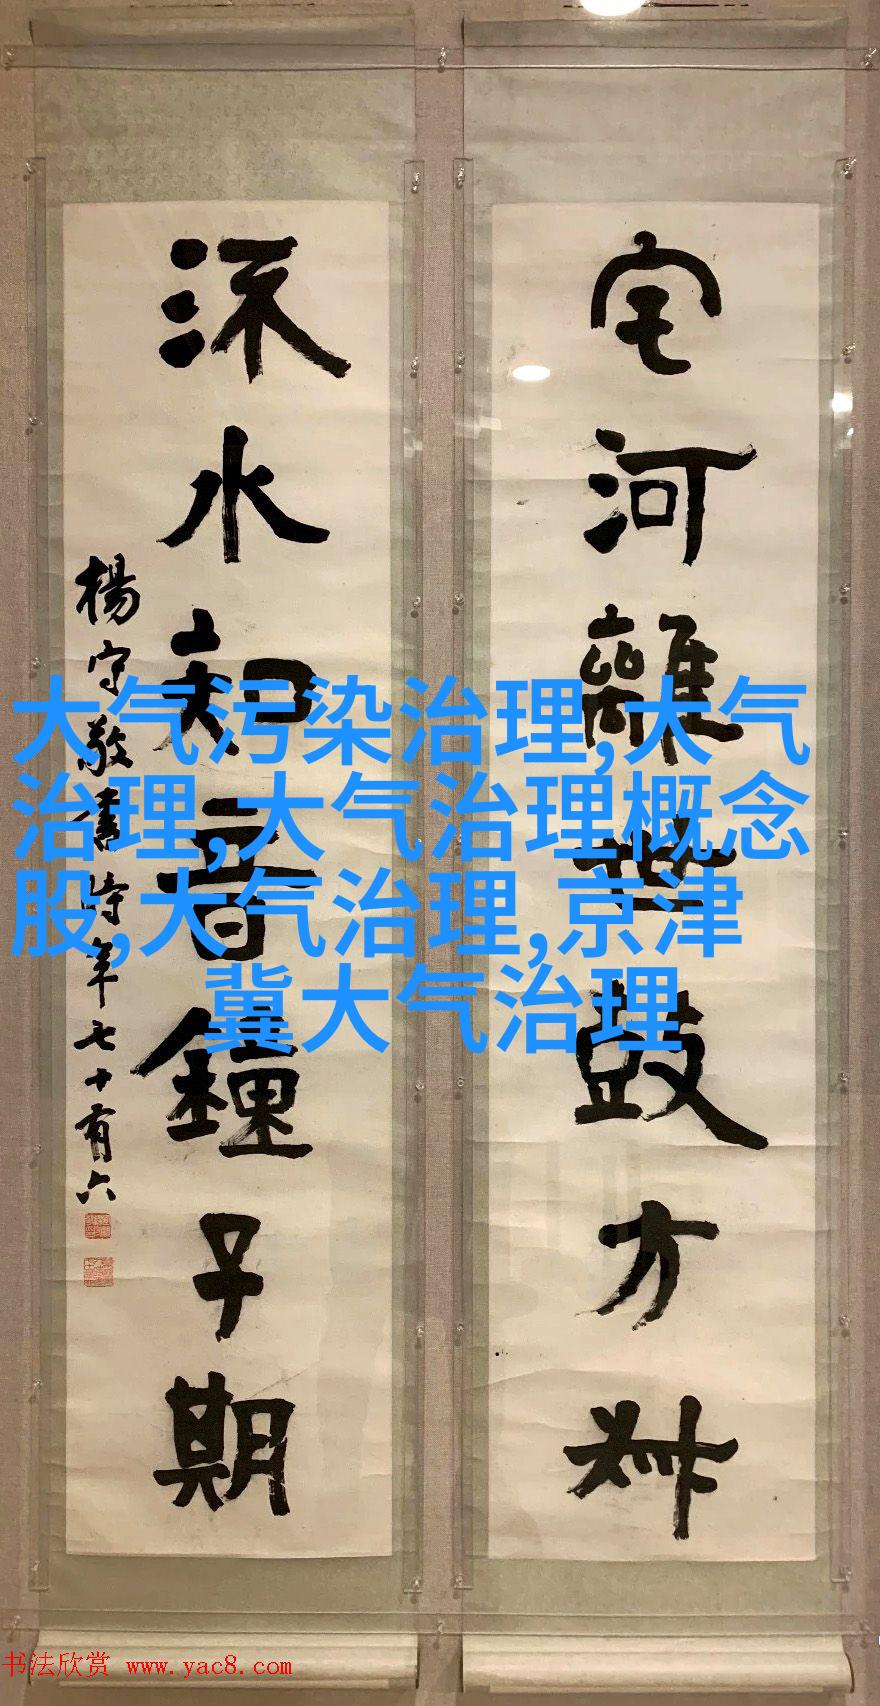 宅河離世鼓方叔
流水知音鍾子期
楊守敬書時年七十有六
大气污染治理,大气
治理,大气治理概念
股,大气治理,京津
冀大气治理
书法欣赏 www.yac8.com